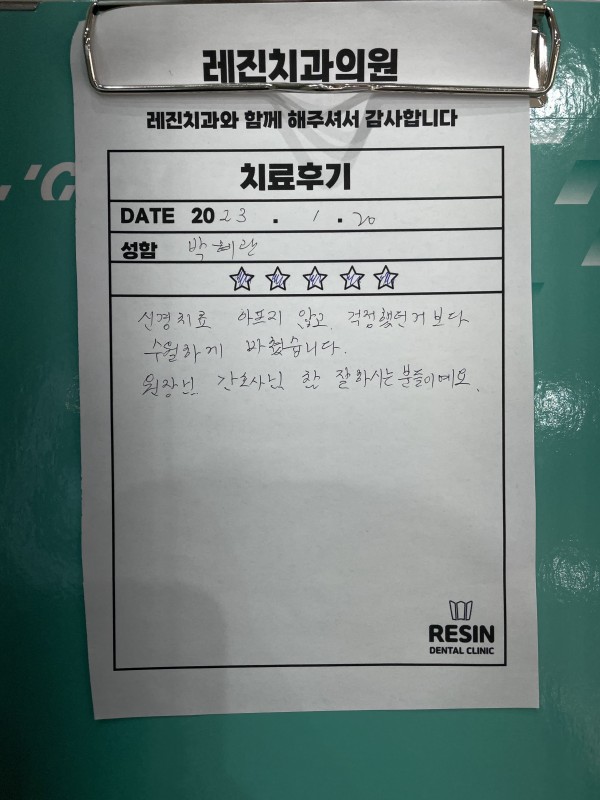 레진치과의원
레진치과와 함께 해주셔서 감사합니다
치료후기
DATE 2023 . 1 . 20
성함 박혜란
신경치료 아프지 않고 걱정했던거 보다
수월하게 마쳤습니다.
원장님 간호사님 참 잘하시는분들이예요.
RESIN
DENTAL CLINIC